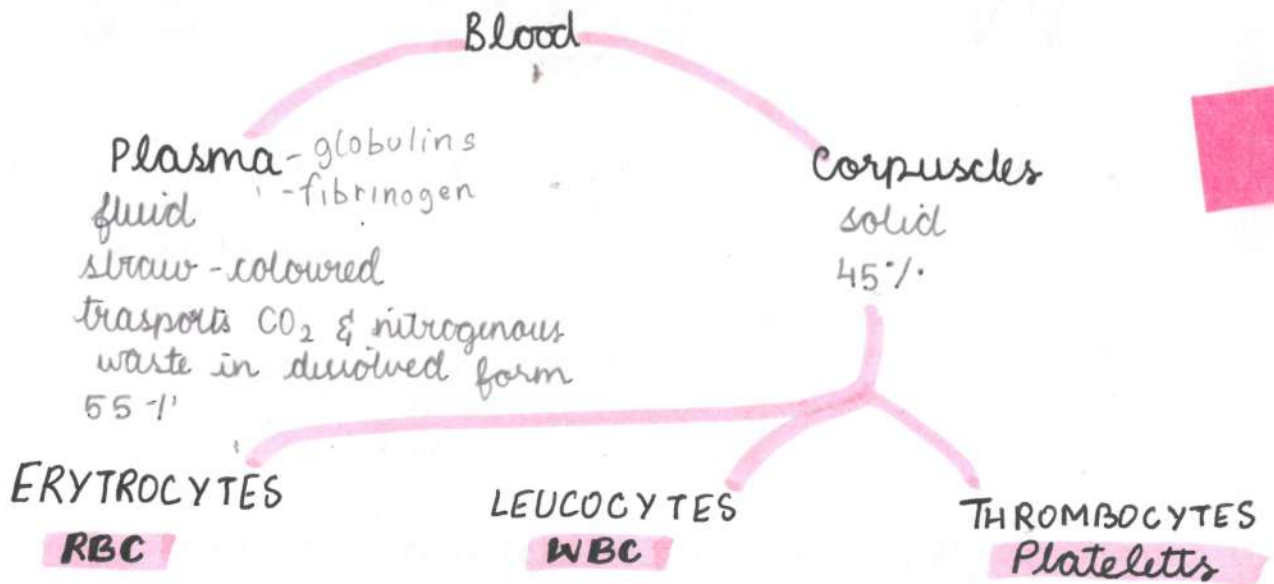 Blood
Plasma - globulins
- fibrinogen
fluid
straw - coloured
trasports CO₂ & nitrogenous
waste in dissolved form
55 %
Corpuscles
solid
45 %
ERYTROCYTES
RBC
LEUCOCYTES
WBC
THROMBOCYTES
Plateletts